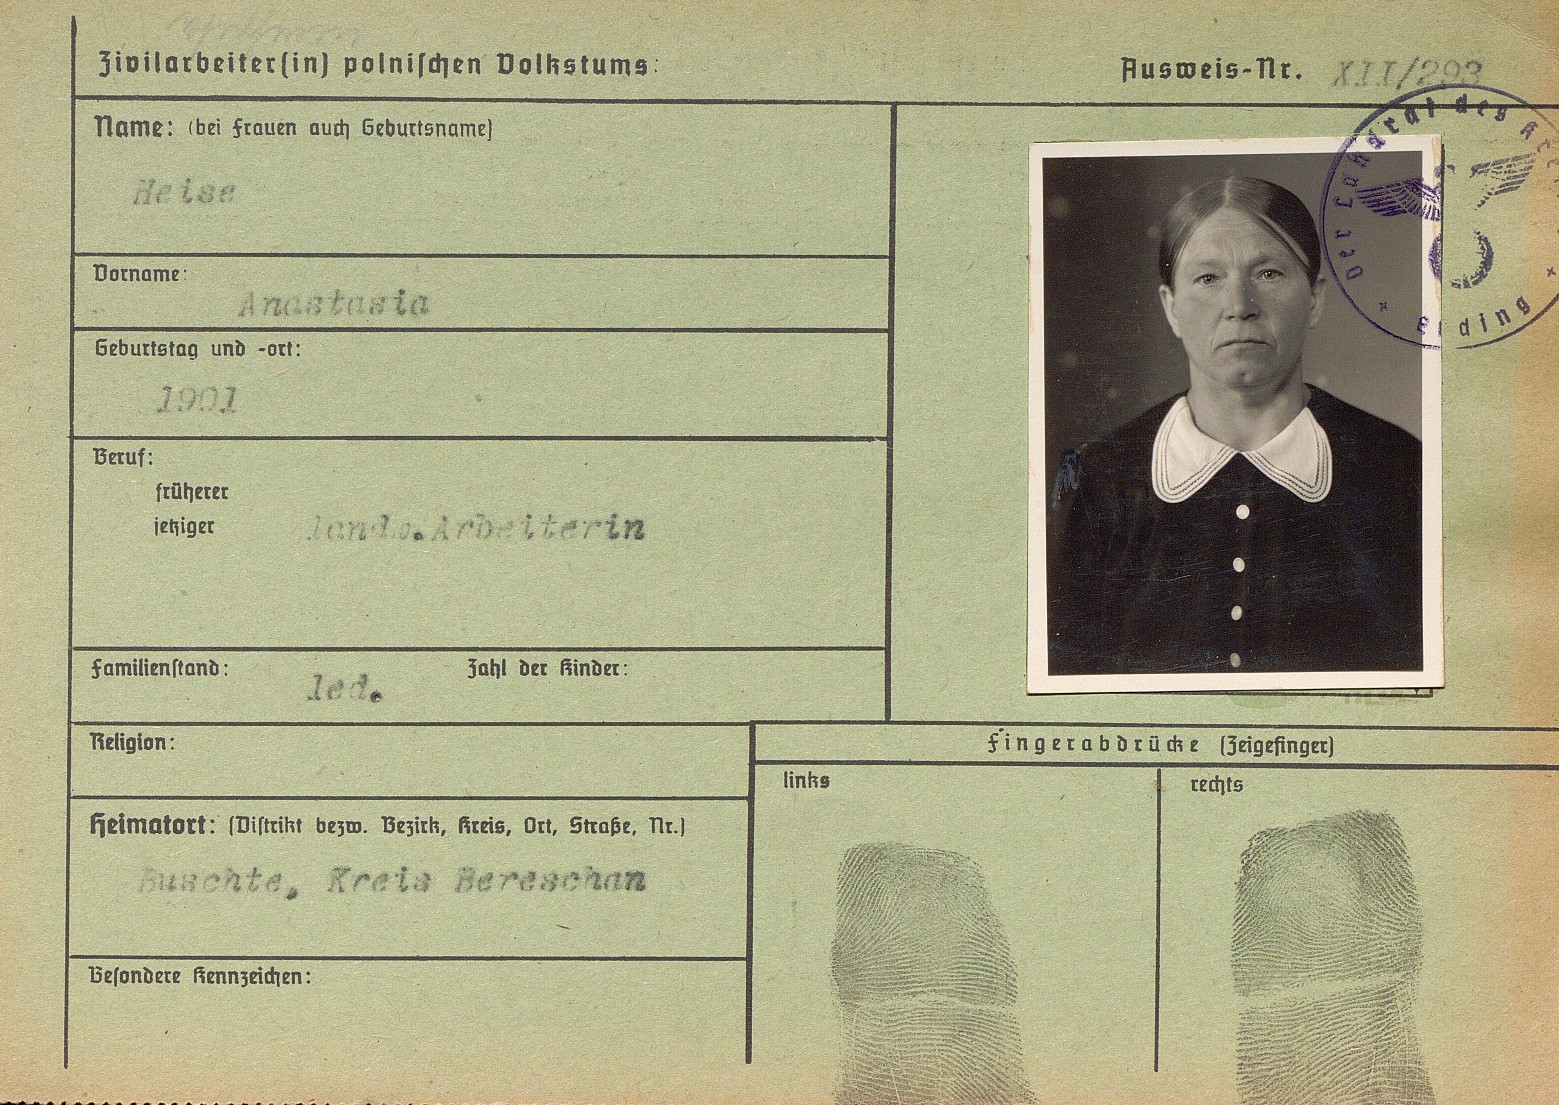 Zivilarbeiter(in) polnischen Volkstums:
Ausweis-Nr. XII/293
Name: (bei Frauen auch Geburtsname)
Heise
Vorname:
Anastasia
Geburtstag und -ort:
1901
Beruf:
früherer
jetziger landw.Arbeiterin
Familienstand: led. Zahl der Kinder:
Religion:
Heimatort: (Distrikt bezw. Bezirk, Kreis, Ort, Straße, Nr.)
Buschte, Kreis Bereschan
Besondere Kennzeichen:
Fingerabdrücke (Zeigefinger)
links
rechts
Der Landrat des
Erding